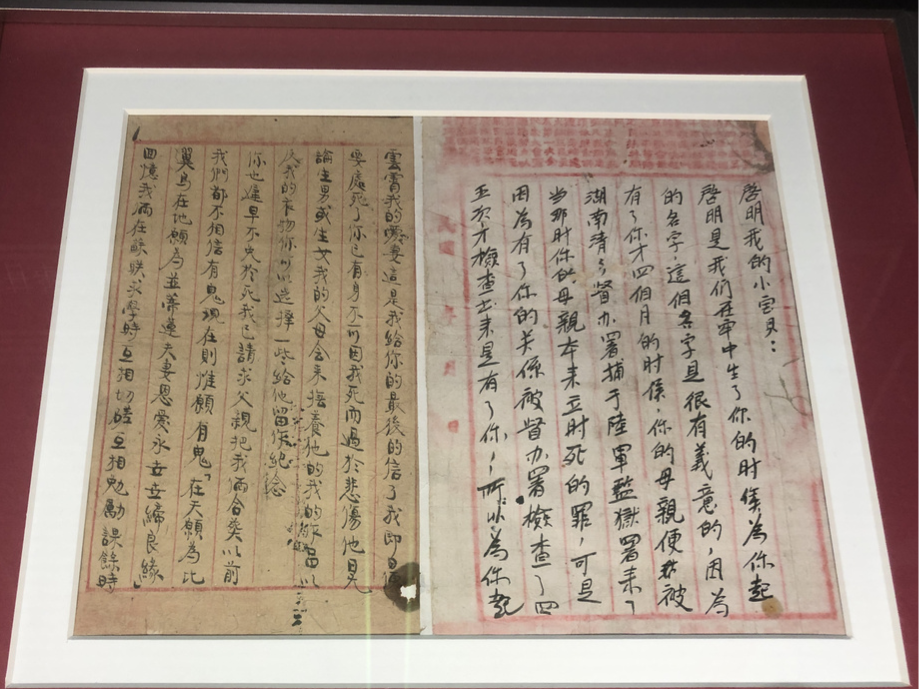 啓明我的小宝贝：
啓明是我们在牢中生了你的时候為你起
的名字，这個名字是很有義意的，因為
有了你才四個月的时候，你的母親便被
湖南清乡督办署捕于陸軍监獄署来了
当那时你的母親本来立时死的罪，可是
因為有了你的关係被督办署檢查了四
五次方檢查出来是有了你，所以為你起
雲霄我的愛妻這是我给你的最後的信了我即日便
要處死了你已有身不可因我死而過於悲傷他日無
論生男或生女我的父母会来撫養他的我的作品以
及我的衣物你可以选擇一些给他留作纪念
你也遲早不免於死我已請求父親把我俩合葵以前
我們都不相信有鬼現在則惟願有鬼「在天願為比
翼鳥在地願為並蒂蓮夫妻恩愛永世世締良緣」
回憶我兩在蘇联求學時互相切磋互相勉勵課餘時